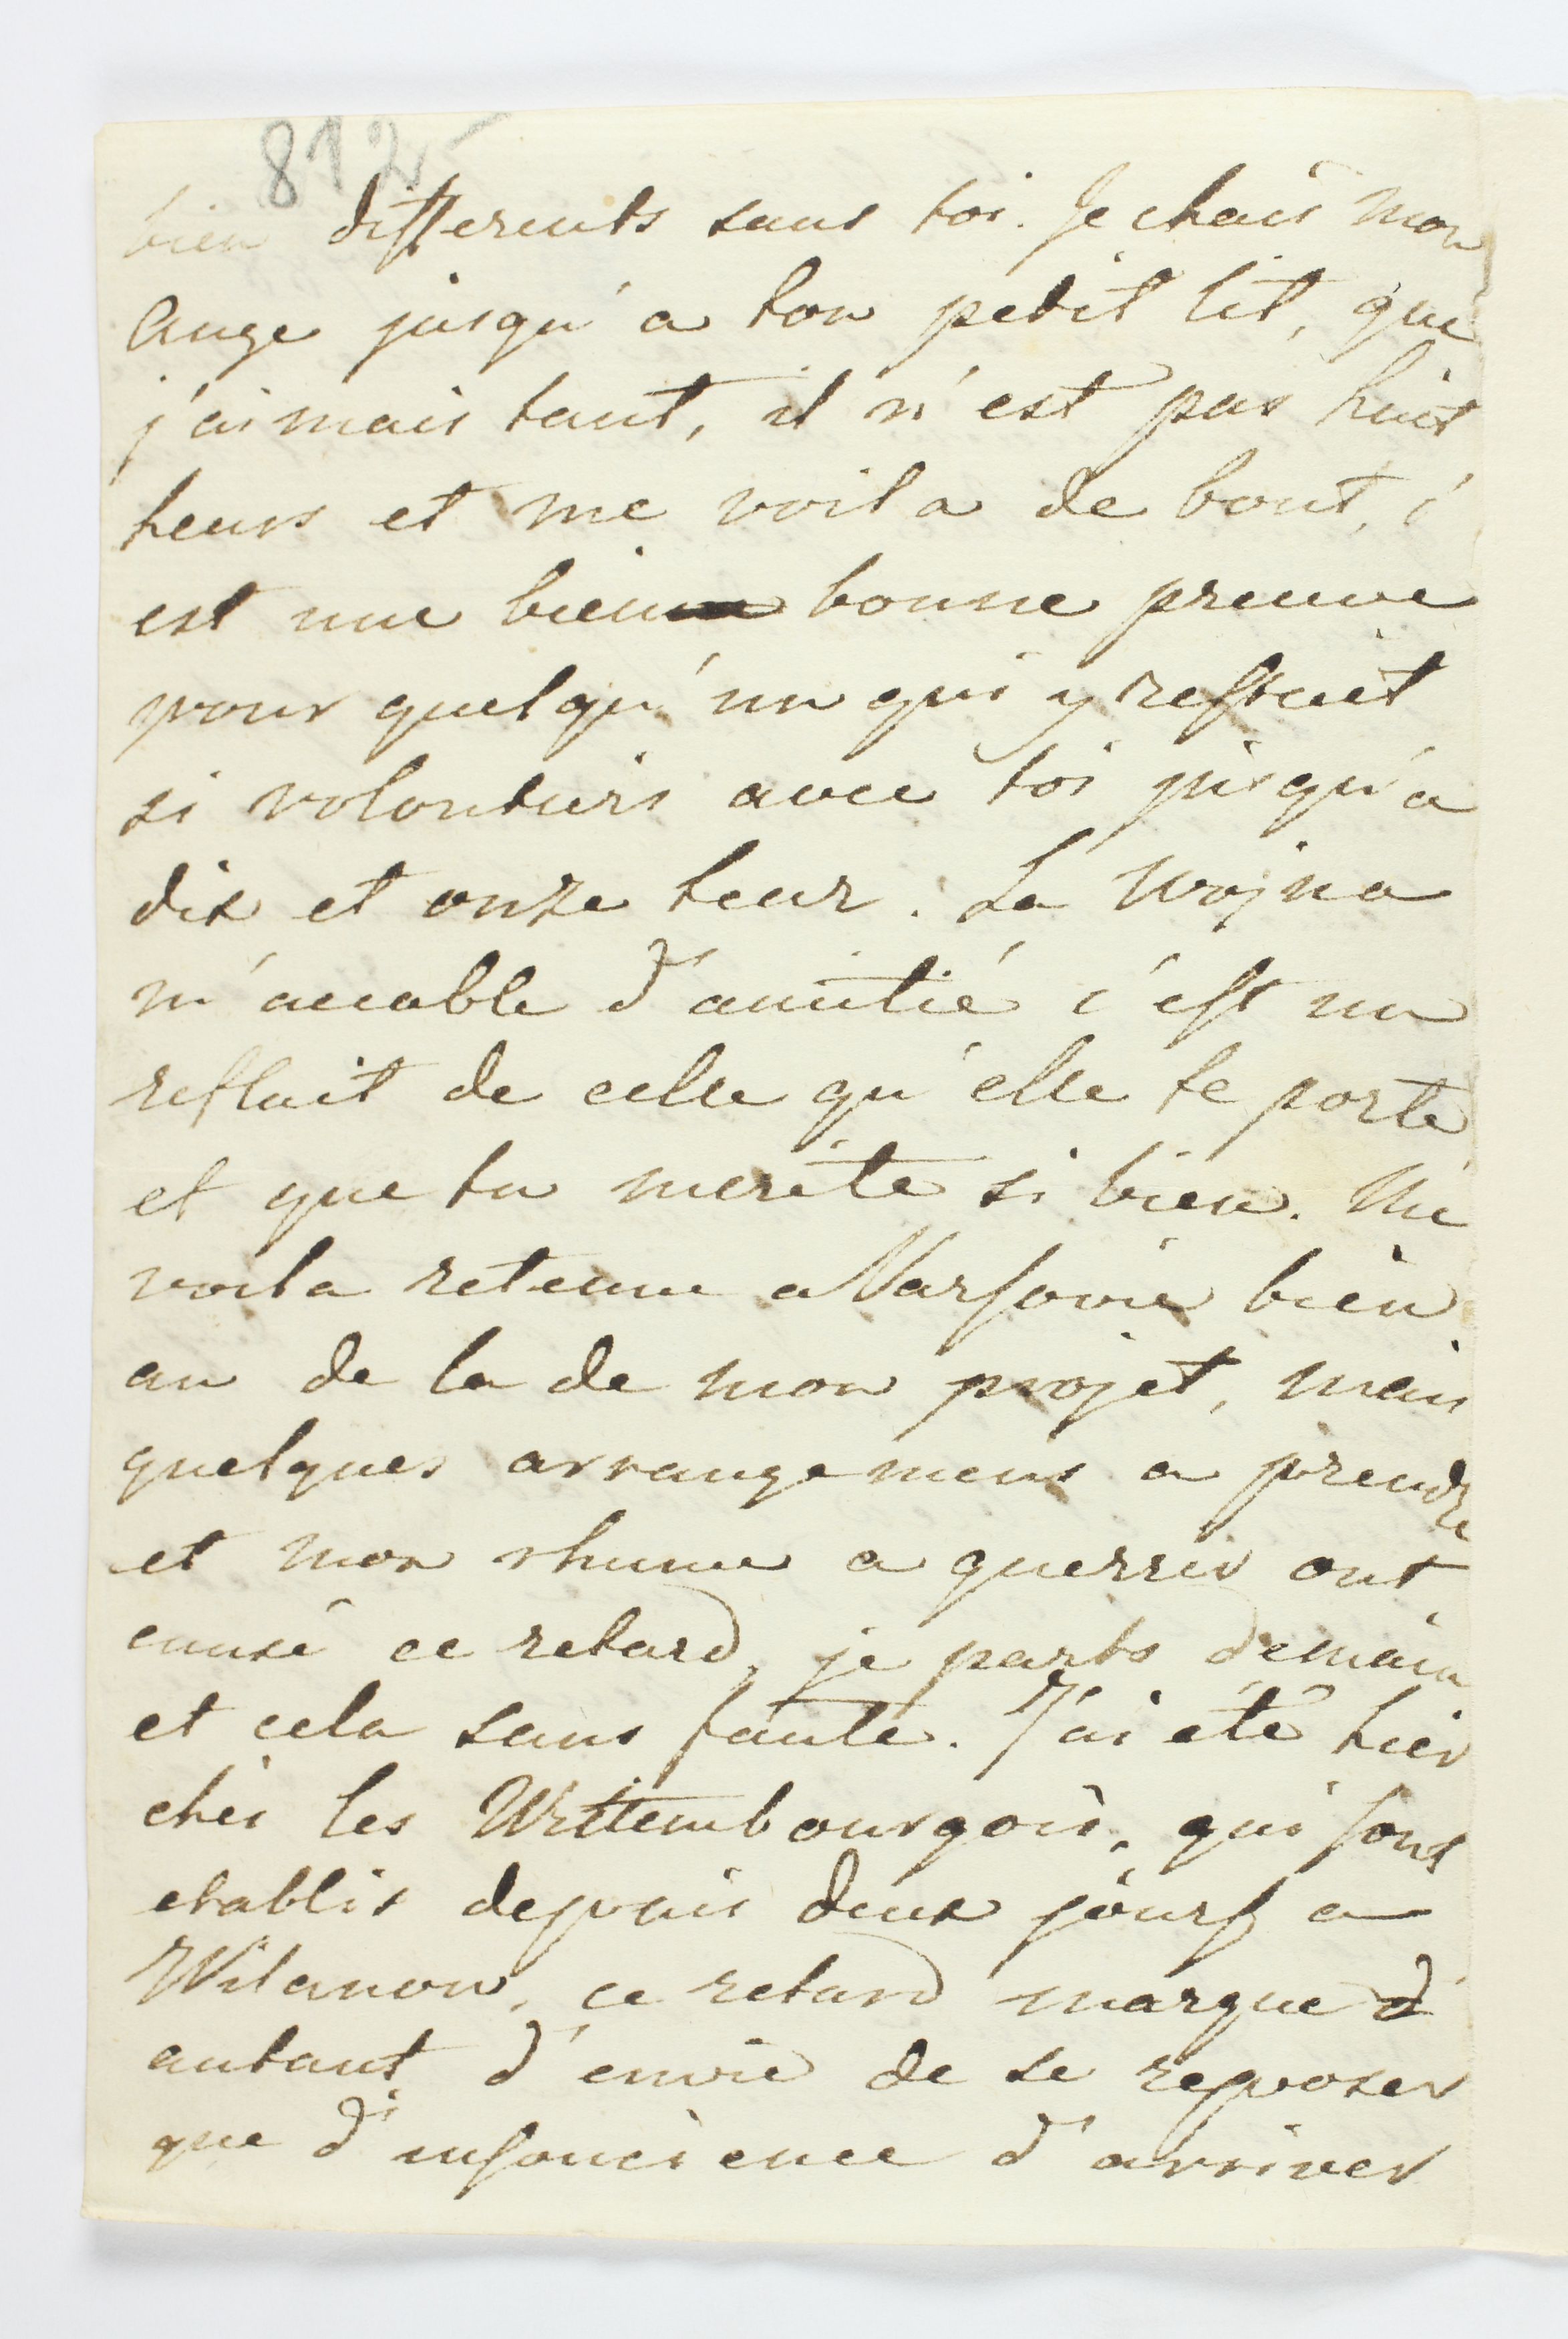 812
bien differents sans toi. Je chais mon
Ange jusqu'a ton petit lit, que
j'aimais tant, il n'est pas huit
heurs et me voila de bout, c'
est une bien bonne preuve
pour quelqu'un qui y restait
si volontiers avec toi jusqu'a
dix et onze heur. La Wojna
m'accable d'amitié c'est un
reflait de celle qu'elle te porte
et que tu merite si bien. Me
voila retenue a Varsovie bien
au de la de mon projet, mais
quelques arrangemens a prendre
et mon rhume a guerrir ont
causé ce retard, je parts demain
et cela sans faute. J'ai été hier
chès les Wirttembourgois, qui sont
etablis depuis deux jours a
Wilanow, ce retard marque d'
autant d'envie de se reposer
que d'insoucience d'arriver